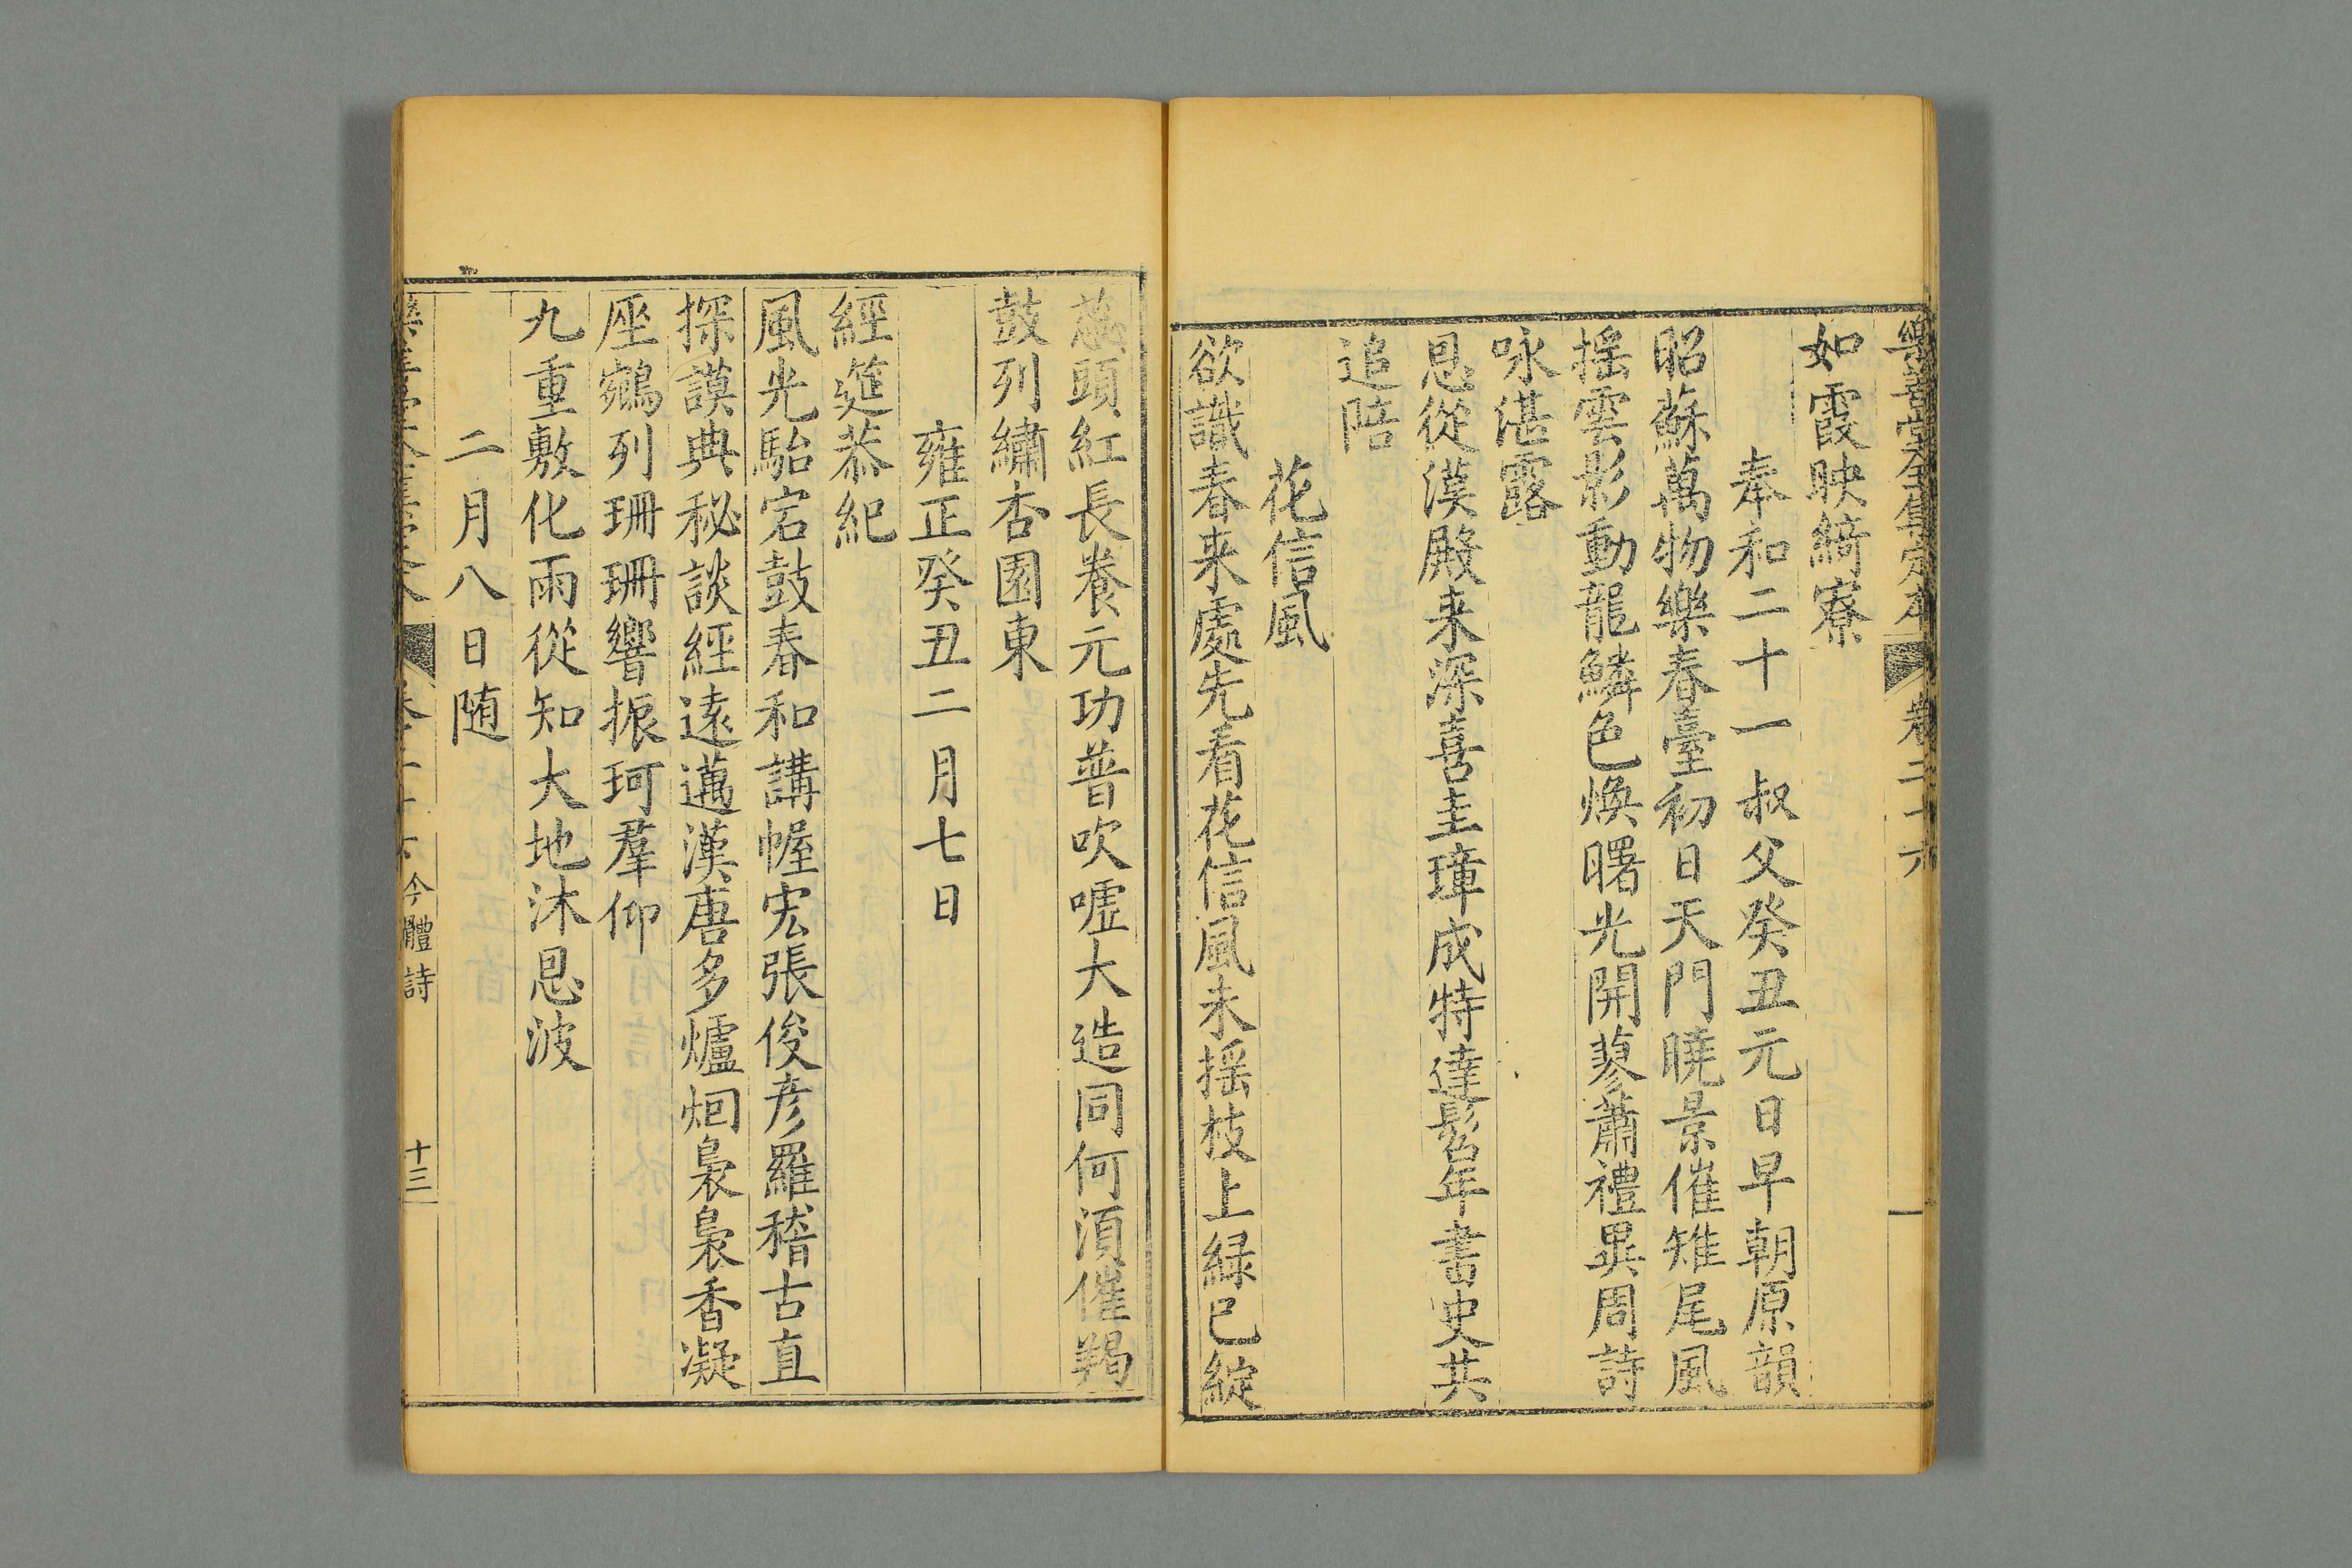 樂善堂全集定本 卷二十六
如霞映綺寮
奉和二十一叔父癸丑元日早朝原韻
昭蘇萬物樂春臺初日天門曉景催雉尾風
搖雲影動龍鱗色煥曙光開蓼蕭禮異周詩
咏湛露
恩從漢殿来深喜圭璋成特達髫年書史共
追陪
花信風
欲識春来處先看花信風未揺枝上緑已綻
蕊頭紅長養元功普吹噓大造同何須催羯
鼓列繡杏園東
雍正癸丑二月七日
經筵恭紀
風光駘宕鼓春和講幄宏張俊彦羅稽古直
探謨典秘談經遠邁漢唐多爐烟裊裊香凝
座鵷列珊珊響振珂羣仰
九重敷化雨從知大地沐恩波
二月八日随
今體詩 十三